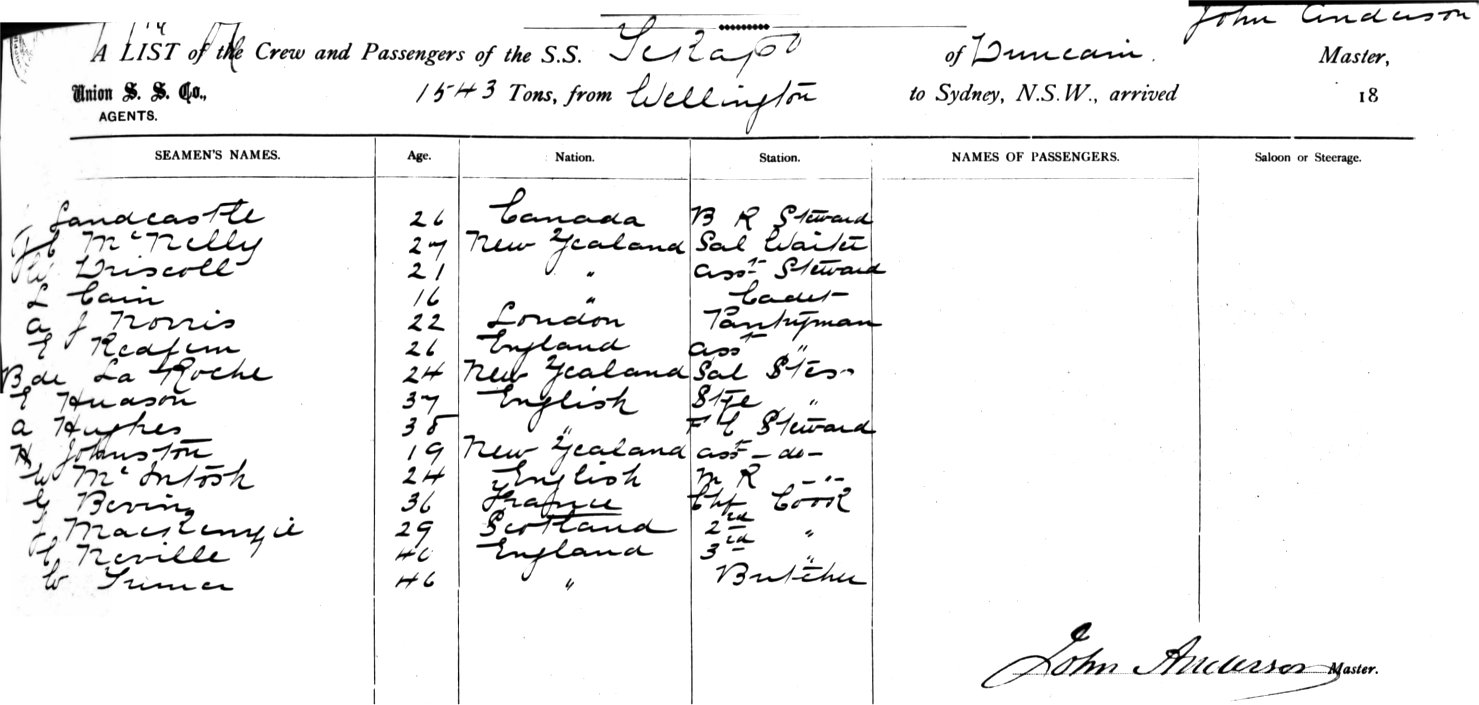 John Anderson
A LIST of the Crew and Passengers of the S.S. Tekapo of Dunedin. Master,
Union S. S. Co., 1543 Tons, from Wellington to Sydney, N.S.W., arrived 18
AGENTS.
SEAMEN'S NAMES. Age. Nation. Station. NAMES OF PASSENGERS. Saloon or Steerage.
Sandcastle 26 Canada B R Steward
McNelly 27 New Zealand Sal Waiter
W Driscoll 21 " asst Steward
L Cain 16 " Cadet
A J Norris 22 London Pantryman
E Redfern 26 England asst "
B de La Roche 24 New Zealand Sal Stess
E Hudson 37 English Stge "
A Hughes 38 " F C Steward
H Johnston 19 New Zealand asst - do -
W McIntosh 24 English M R - " -
G Bevin 36 France Chf Cook
MacKenzie 29 Scotland 2nd "
Neville 40 England 3rd "
W 46 " Butcher
John Anderson Master.